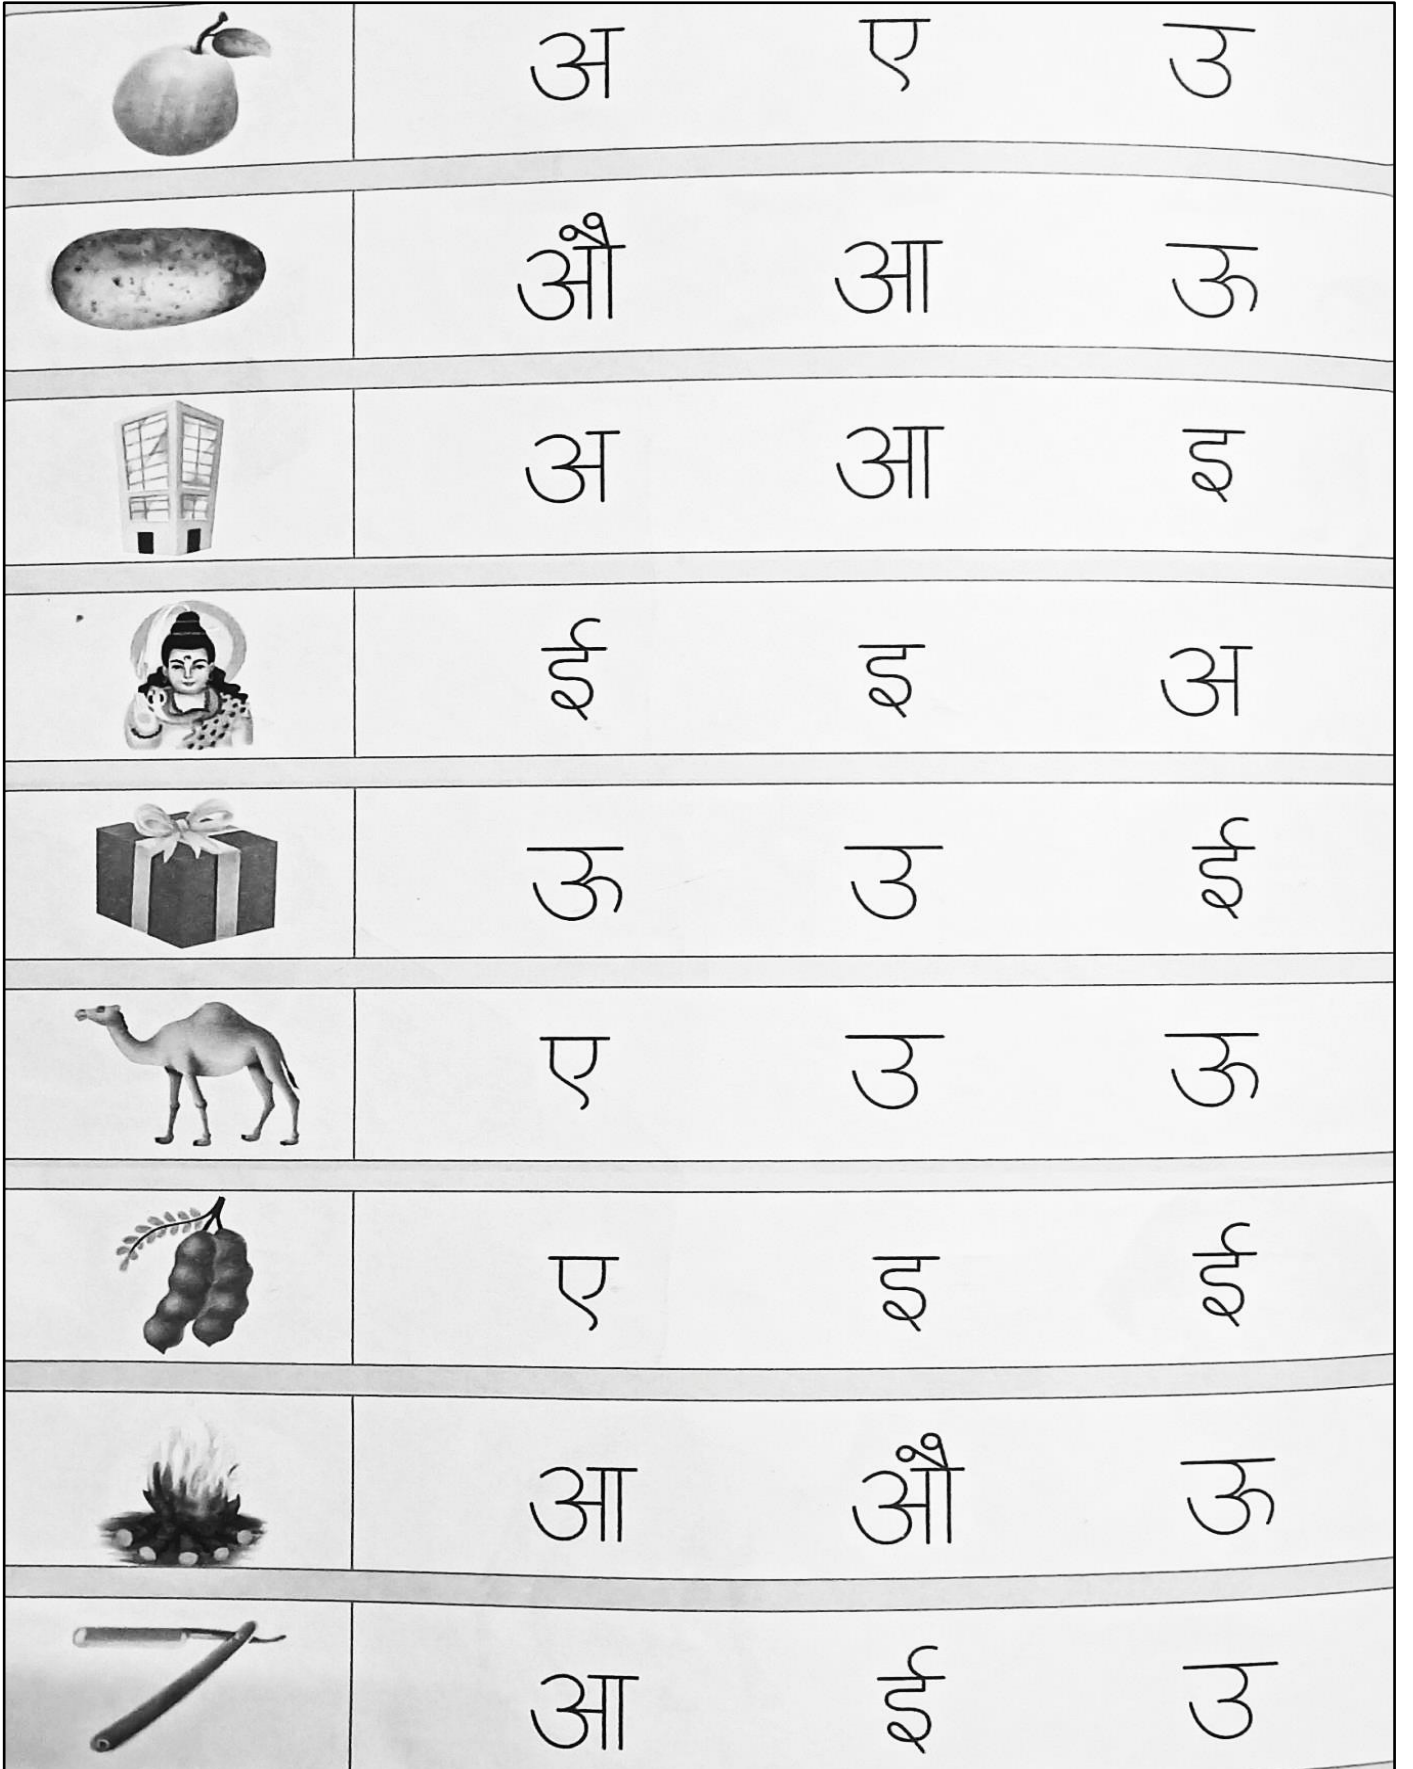 अ ए उ
औ आ ऊ
अ आ इ
ई इ अ
ऊ उ ई
ए उ ऊ
ए इ ई
आ औ ऊ
आ ई उ